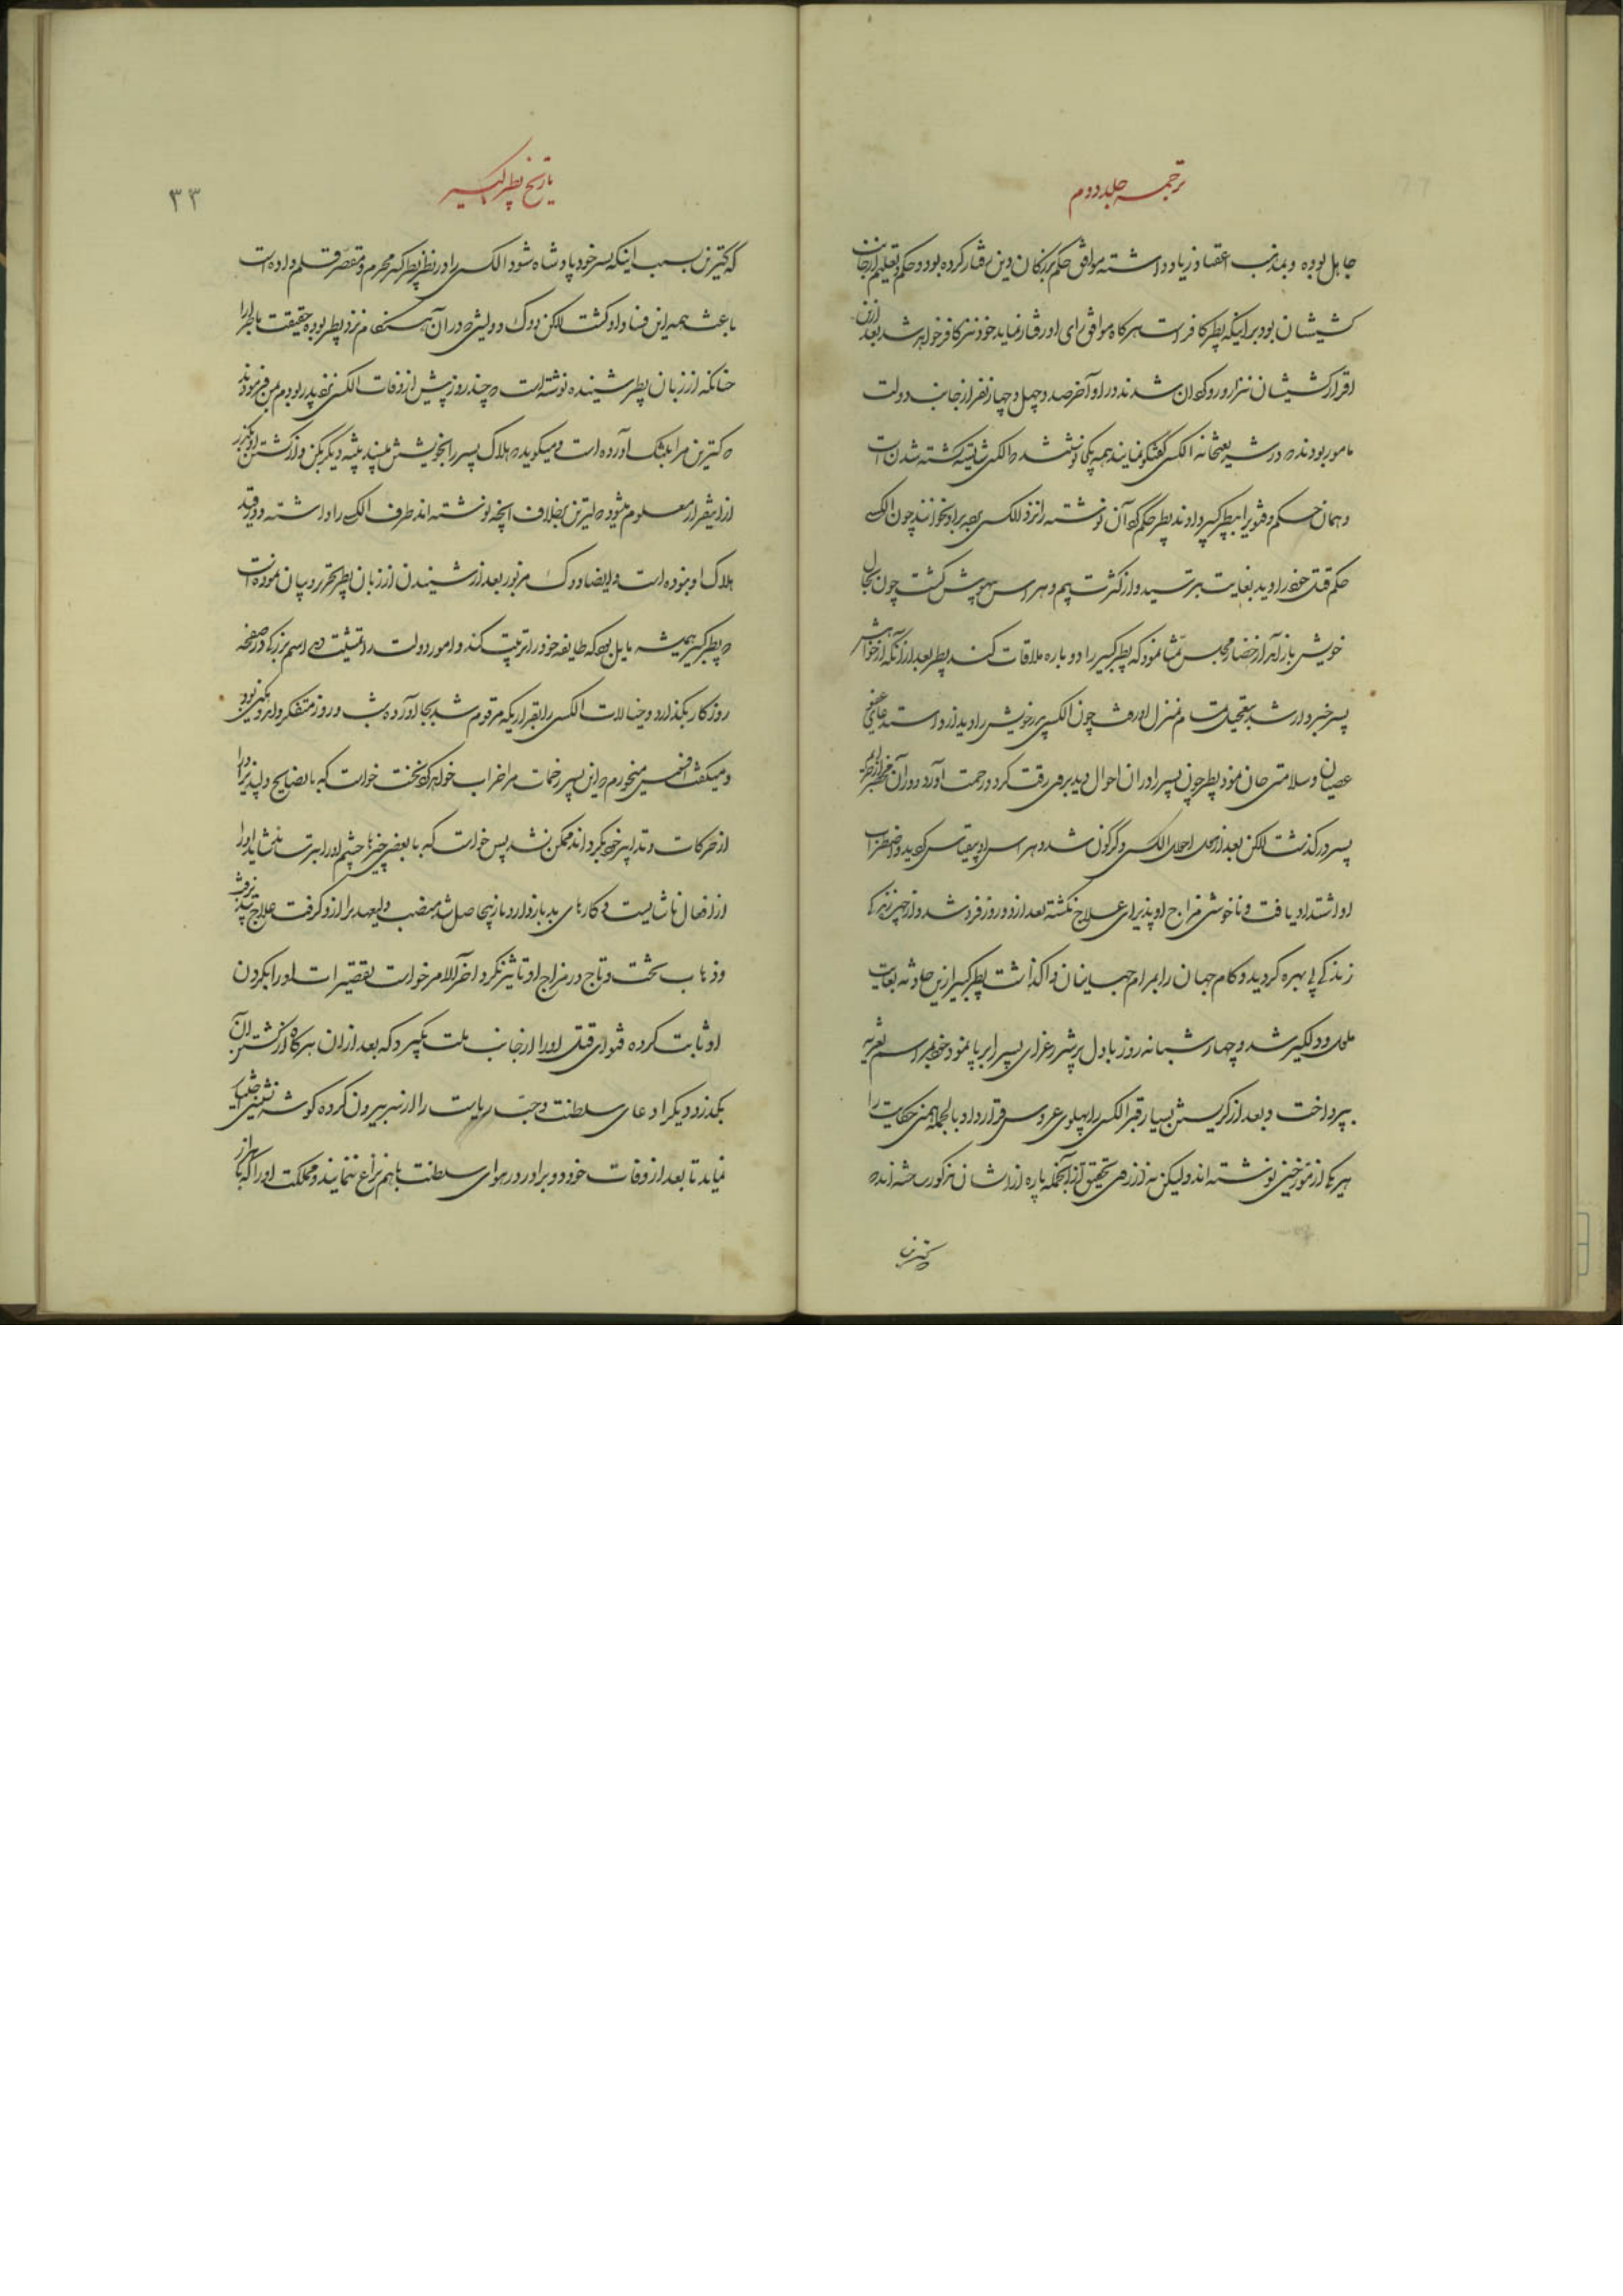 ترجمه جلد دوم
جاهل بوده و بمذهب اعتقاد زیاد داشته موافق حکم بزرگان دین رفتار کرده بود و حکم تعلیم از جانب
کشیشان بود بر اینکه پطر کافر است هر کاه موافق رای او رفتار نماید خود نیز کافر خواهد شد بعد ازین
اقرار کشیشان نیز ارو رو کردان شدند در او آخر صد و چهل و چهار نفر از جانب دولت
مامور بودند که در شریعتخانه الکسی گفتگو نمایند همه یکجا نوشتند که الکسی شایسته کشته شدن است
و همان حکم و فتوی را بپطر کبیر دادند پطر حکم کرد آن نوشته را نزد الکسی برده برای او بخوانند چون الکسی
حکم قتل خود را دید بغایت بترسید و از کثرت بیم و هراس بیهوش گشت چون بحال
خویش باز آمد از حضار مجلس تمنا نمود که پطر کبیر را دوباره ملاقات کند پطر بعد از آنکه از خواهش
پسر خبردار شد بتعجیل تمام بمنزل او رفت چون الکسی پدر خویش را دید از و استدعای عفو
عصیان و سلامتی جان نمود پطر چون پسر را در ان احوال دید بروی رقت کرد و رحمت آورد و در آن
پسر در گذشت لکن بعد ازین احوال الکسی دگرگون شد و هراس او بیقیاس گردید و اضطراب
او اشتداد یافت و ناخوشی مزاج او پذیرای علاج نکشته بعد از دو روز فرو شد و از چیز
زندگی بی بهره کردید و کام جهان را بمرام جهانیان واگذاشت پطر کبیر ازین حادثه بغایت
ملول و دلگیر شد و چهار شبانه روز با دل پر شرر عزای پسر را بر پا نمود و خود بمراسم تعزیه
بپرداخت و بعد از کریستن بسیار قبر الکسی را پهلوی عروس قرار داد بالجمله همین حکایت را
هر یکی از مورخین نوشته اند ولیکن نه از روی تحقیق از آنجمله پاره از ایشان مذکور ساخته اند که
کترین
تاریخ پطر کبیر
۳۳
که کترین بسبب اینکه پسر خود پادشاه شود الکسی را در نظر پطر کبیر مجرم و مقصر قلم داده است
باعث همه این فساد او کشت لکن دوک دولیش که در آن هنگام نزد پطر بوده حقیقت ماجرا را
چنانکه از زبان پطر شنیده نوشته است که چند روز پیش از وفات الکسی نزد پدر او بودم بمن فرمودند
که کترین مرا بتنگ آورده است و میکوید که هلاک پسر را بخویشتن مپسند پیشه دیگر بکن و از کشتن او بگذر
ازین قرار معلوم میشود که کترین بخلاف آنچه نوشته اند طرف الکسی را داشته و در قصد
هلاک او نبوده است و ایضا دوک مزبور بعد از شنیدن از زبان پطر تحریر و بیان نموده است
که پطر کبیر همیشه مایل بود که طایفه خود را تربیت کند و امور دولت را تمشیت دهد اسم بزرگی در صفحه
روزکار بگذارد و خیالات الکسی را بقراریکه مرقوم شد بجا آورده شب و روز متفکر و اندوهگین بود
و میگفت افسوس میخورم که این پسر زحمات مرا خراب خواهد کرد نخست خواست که با نصایح دلپذیر او را
از حرکات و تدابیر خود بگرداند ممکن نشد پس خواست که با بعضی چیزها چشم او را بترساند شاید او را
از افعال ناشایست و کارهای بد باز دارد باز بیحاصل شد منصب ولیعهدی را از و کرفت علاج پذیر نشد
و ذهاب تخت و تاج در مزاج او تاثیر نکرد آخر الامر خواست تقصیرات او را بکردن
او ثابت کرده فتوای قتل او را از جانب ملت بگیرد که بعد از ان هر کاه از کشتن آن
بگذرد دیگر ادعای سلطنت و حب ریاست را از سر بیرون کرده کوشه نشینی اختیار
نماید تا بعد از وفات خود دو برادر در هوای سلطنت با هم نزاع ننمایند و مملکت او را که